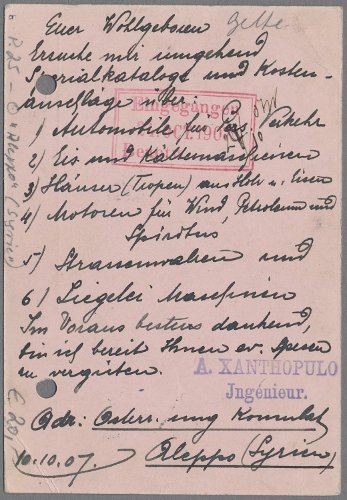 Euer Wohlgeboren
Ersuche mir umgehend
Spezialkataloge und Kosten-
anschläge über:
Eingegangen
1) Automobile für Verkehr
2) Eis und Kältemaschinen
3) Häuser (Tropen) aus Holz u. Eisen
4) Motoren für Wind, Petroleum und
Spiritus
5) Strassenwalzen und
6) Ziegelei Maschinen
Im Voraus bestens dankend,
bin ich bereit Ihnen ev. Spesen
zu vergüten.
A. XANTHOPULO
Jngénieur.
Adr: Österr. ung Konsulat
10.10.07. Aleppo (Syrien)